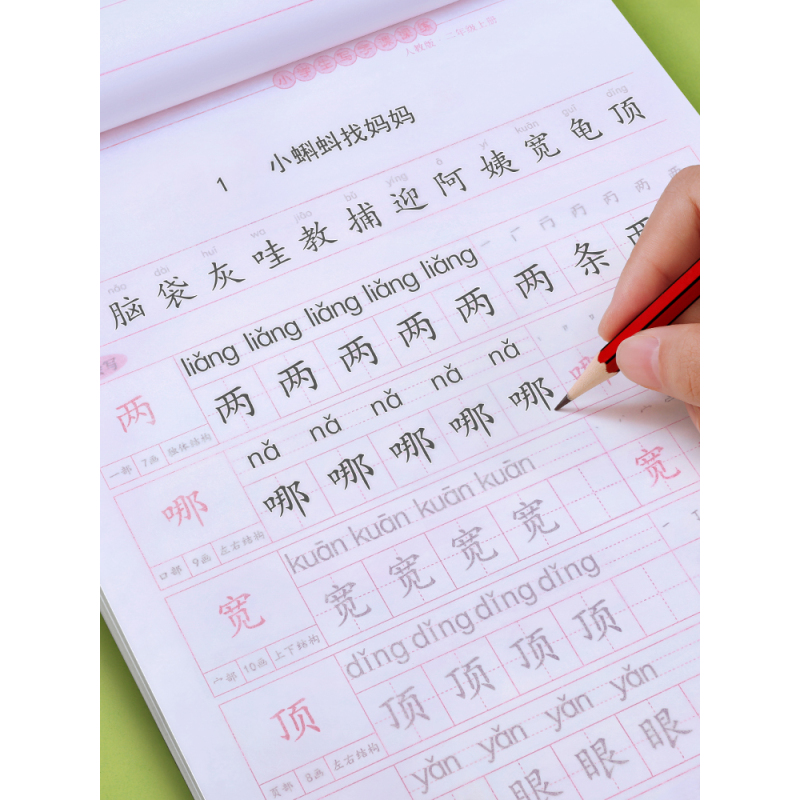 小学生写字课课练
人教版 二年级上册
1 小蝌蚪找妈妈
nǎo dài huī wa jiāo bǔ yíng ā yí kuān guī dǐng
脑 袋 灰 哇 教 捕 迎 阿 姨 宽 龟 顶
liǎng liǎng liǎng liǎng liǎng
两 两 两 两 两 两 两 条 两
一部 7画 独体结构
nǎ nǎ nǎ nǎ nǎ
哪 哪 哪 哪 哪 哪 哪
口部 9画 左右结构
kuān kuān kuān kuān
宽 宽 宽 宽 宽 宽
宀部 10画 上下结构
dǐng dǐng dǐng dǐng
顶 顶 顶 顶 顶
页部 8画 左右结构
yǎn yǎn yǎn yǎn
眼 眼 眼